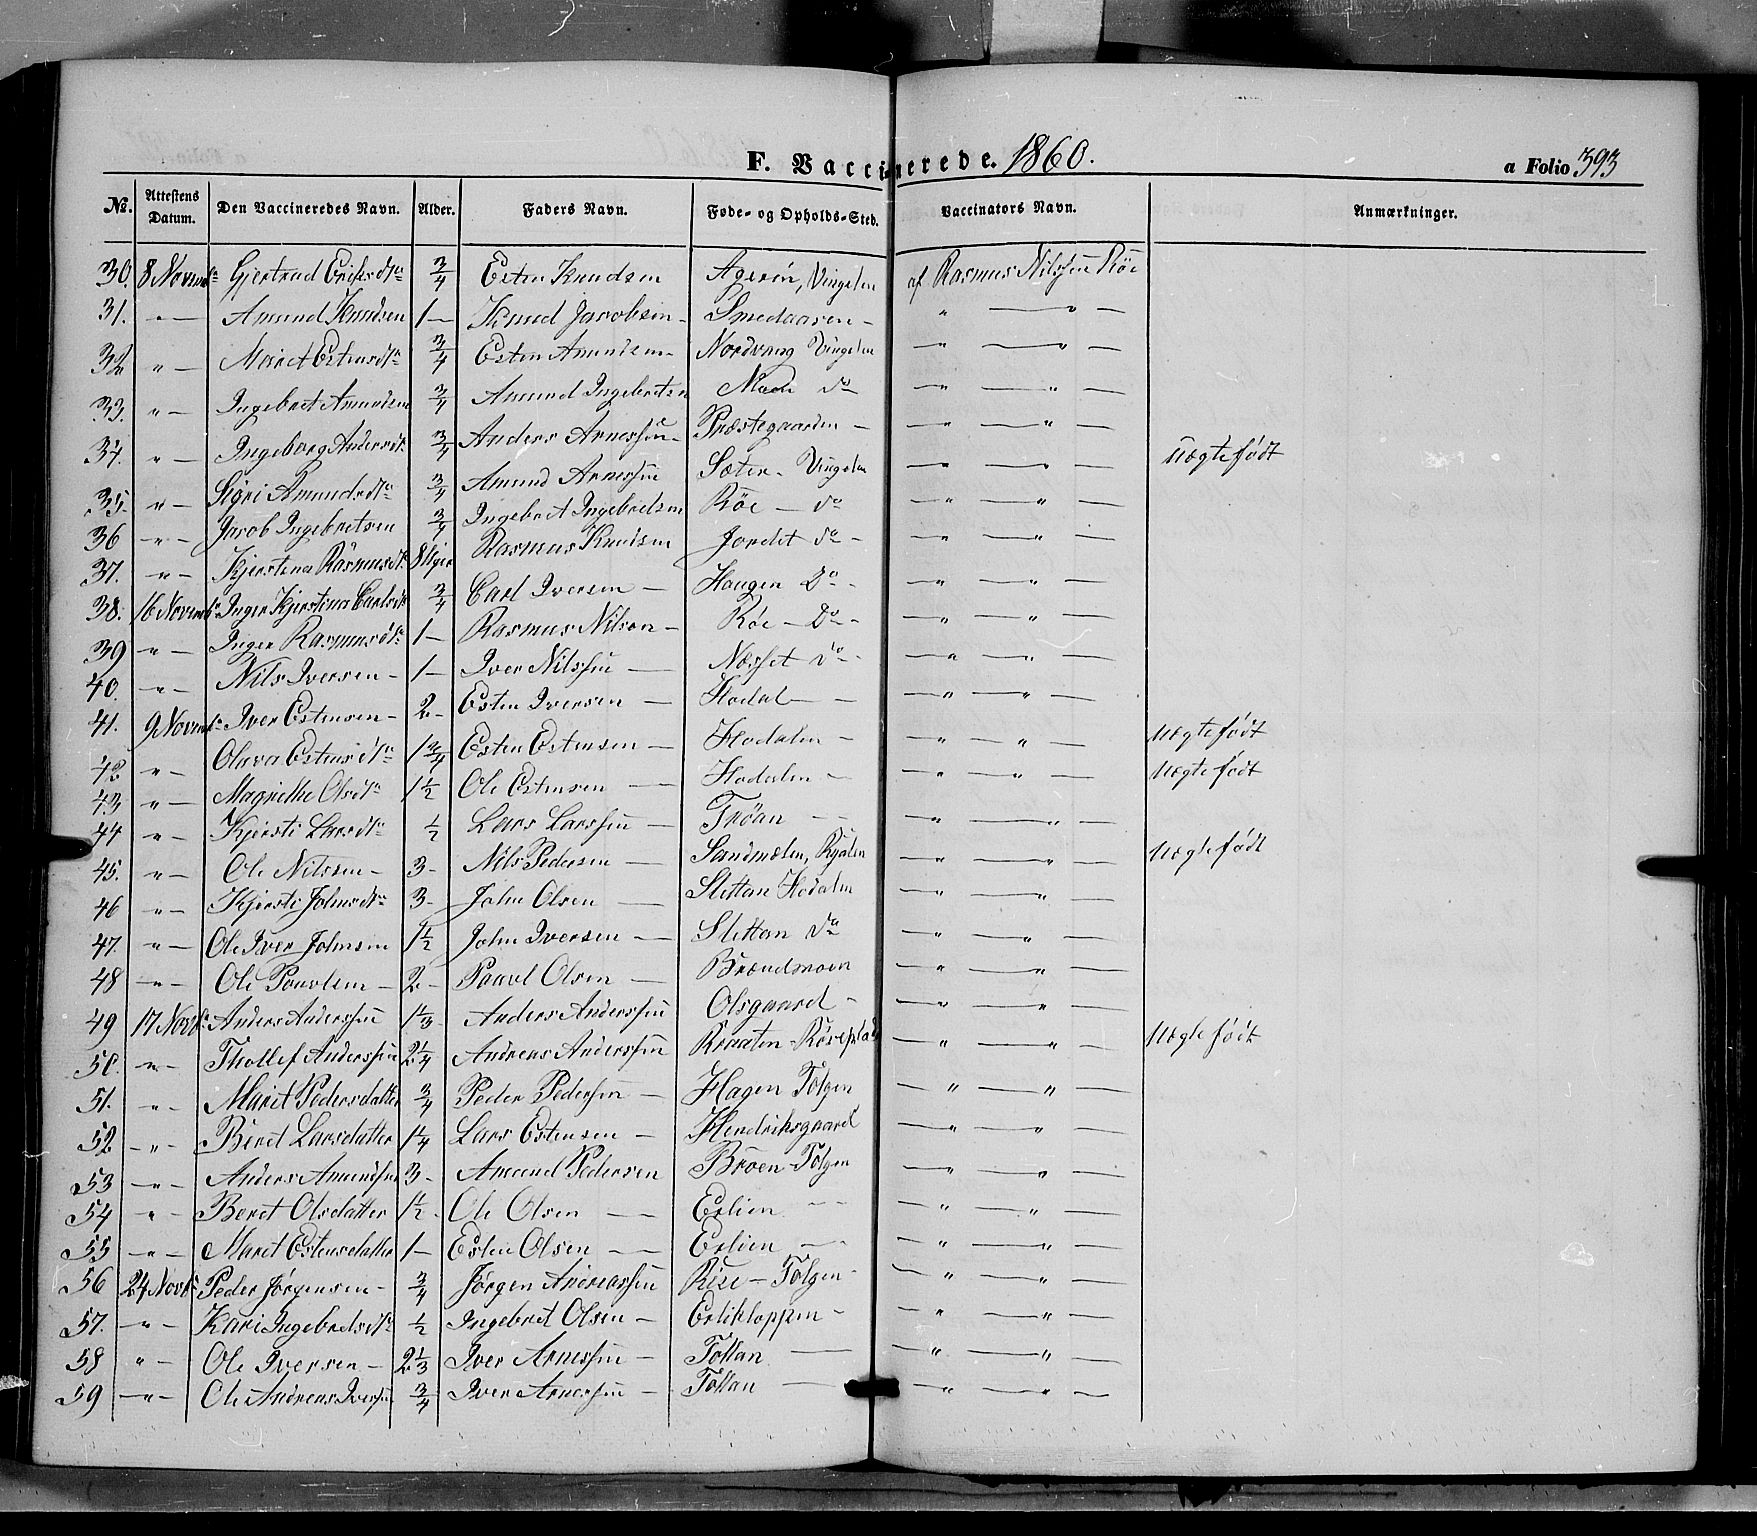 F. Vaccinerede. 1860. a Folio 393
No. Attestens Datum. Den Vaccineredes Navn. Alder. Faders Navn. Føde- og Opholds-Sted. Vaccinators Navn. Anmærkninger.
30. 8 Novembr Gjertrud Eriksdtr 3/4 Esten Knudsen Vingelen af Rasmus Nilssen Röe
31. " — Amund Knudsen 1 — Knud Jacobsen — Smedaasen — " — " —
32 " — Maret Estensdtr 3/4 Esten Amundsen — Nordvang Vingelen " — " —
33. " — Ingebret Amundsen 3/4 Amund Ingebretsen Moen do " — " —
34. " — Ingeborg Andersdtr 3/4 Anders Arnessen — Præstegaarden — " — " —
35. " — Sigri Amundsdtr 3/4 Amund Arnessen Sæter — Vingelen — " — " — uægtefødt
36 " — Jacob Ingebretsen 3/4 Ingebret Ingebretsen Röe — do — " — " —
37. " — Kjerstina Rasmusdtr 8 Uger Rasmus Knudsen Jordet do — " — " —
38. 16 Novembr Inger Kjerstina Carlsdtr 3/4 Carl Iversen — Haugen Do — " — " —
39 " — Inger Rasmusdtr 1 — Rasmus Nilson — Röe — Do — " — " —
40. " — Nils Iversen — 1 — Iver Nilssen — Næsset do — " — " —
41. 9 Novembr Iver Estensen — 2 — Esten Iversen — Hodal — " — " —
42 " — Olava Estensdtr 1 3/4 Esten Estensen — Hodalen — " — " — Uægtefødt
43 " — Magnille Olsdtr 1 1/2 Ole Estensen — Hodalen — " — " — Uægtefødt
44 " — Kjersti Larsdtr 1/2 Lars Larssen — Tröan — " — " —
45. " — Ole Nilssen — 3 — Nils Pedersen — Sandmælen, " — " — Uægtefødt
46 " — Kjersti Johnsdtr 3 — John Olsen — Slettan Hodalen — " — " —
47. " — Ole Iver Johnsen 1 1/2 John Iversen — Slettan do — " — " —
48 " — Ole Paavlsen — 2 — Paavl Olsen — Brændmoen — " — " —
49 17 Novbr Anders Anderssen 1 1/3 Anders Anderssen Olsgaard — " — " —
50. " — Thollef Anderssen 2 1/4 Andreas Anderssen — " — " — Uægtefødt
51. " — Marit Pedersdatter 3/4 Peder Pederssen — Hagen Tolgen — " — " —
52 " — Beret Larsdatter 1 1/4 Lars Estensen — Hendriksgaard — " — " —
53 — " — Anders Amundsen 3 — Amund Pedersen Broen Tolgen — " — " —
54 " — Beret Olsdatter 1 1/2 — Ole Olsen — Erlien — " — " —
55 " — Maret Estensdatter 1 — Esten Olsen — Erlien — " — " —
56 24 Novbr Peder Jörgensen — 3/4 Jörgen Andreassen Riise — Tolgen — " — " —
57. " — Kari Ingebretsdtr 1/2 Ingebret Olsen — Erlikloppen — " — " —
58 " — Ole Iversen — 2 1/3 Iver Arnessen — Tollan — " — " —
59 — " — Ole Andreas Iversen 3/4 Iver Arnessen — Tollan — " — " —